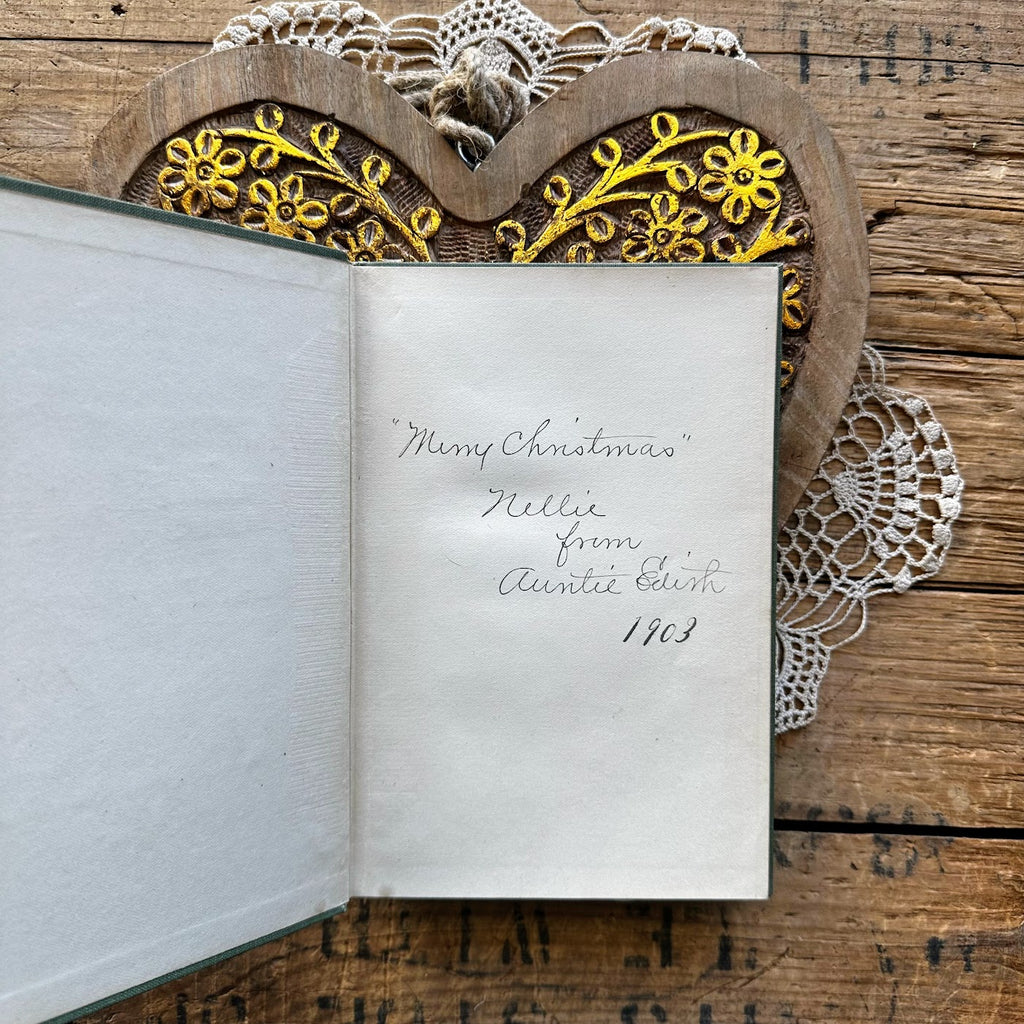 "Merry Christmas"
Nellie
from
Auntie Edith
1903